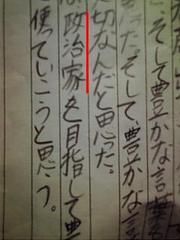 そして豊かな言葉
った。そして、豊かな言
切なんだと思った。
は政治家を目指して豊
使っていこうと思う。